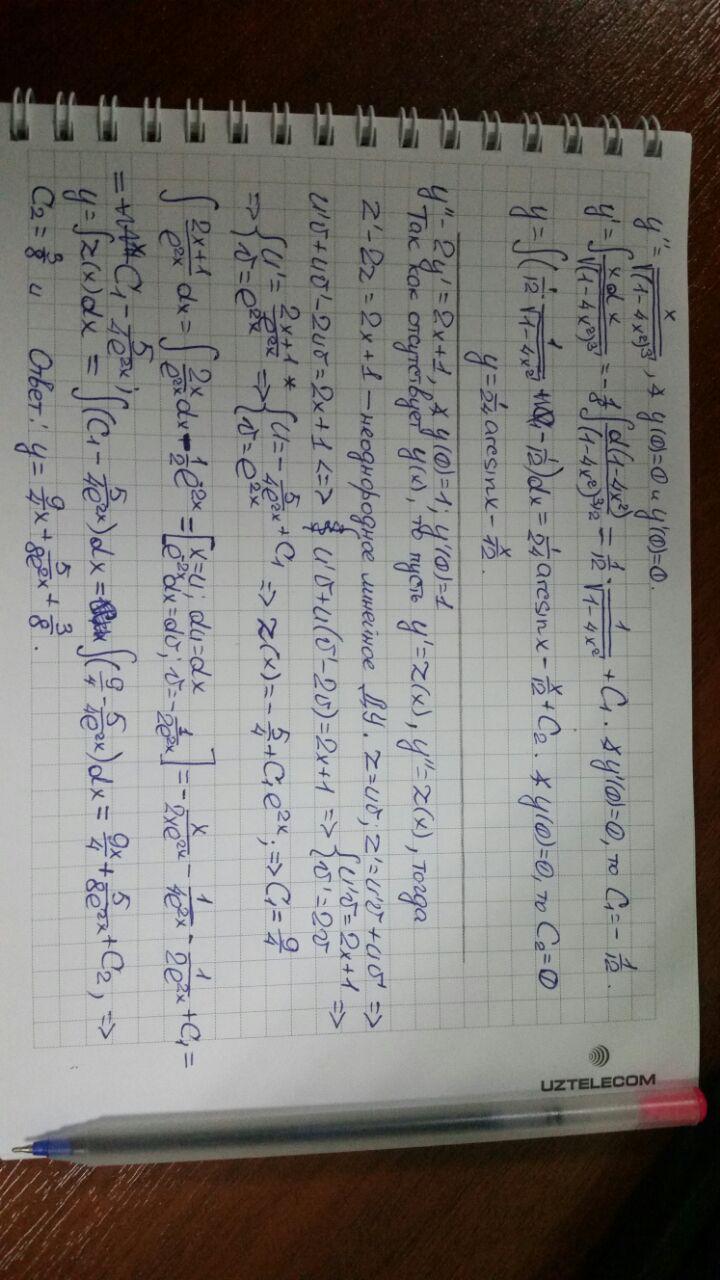 y'' = x/√((1-4x²)³), y(0)=0 и y'(0)=0.
y' = ∫ xdx/√((1-4x²)³) = -1/8 ∫ d(1-4x²)/(1-4x²)^(3/2) = 1/12 · 1/√(1-4x²) + C₁. y'(0)=0, то C₁ = -1/12.
y = ∫(1/12 · 1/√(1-4x²) - 1/12)dx = 1/24 arcsin x - x/12 + C₂. y(0)=0, то C₂=0
y = 1/24 arcsin x - x/12.
y'' - 2y' = 2x+1, y(0)=1; y'(0)=1
Так как отсутствует y(x), то пусть y'=z(x), y''=z(x), тогда
z'-2z = 2x+1 – неоднородное линейное ДУ. z=uv, z'=u'v+uv' =>
u'v+uv'-2uv=2x+1 <=> u'v+u(v'-2v)=2x+1 => { u'v=2x+1 v'=2v =>
=> { u'=(2x+1)/e^(2x) * v=e^(2x) => { u=-5/(4e^(2x))+C₁ v=e^(2x) => z(x)=-5/4+C₁e^(2x); => C₁=9/4
∫ (2x+1)/e^(2x) dx = ∫ 2x/e^(2x) dx - 1/2 e^(-2x) = [x=u; du=dx e^(-2x)dx=dv; v=-1/(2e^(2x))] = -x/(2xe^(2x)) - 1/(4e^(2x)) - 1/(2e^(2x)) + C₁ =
= C₁ - 5/(4e^(2x));
y = ∫z(x)dx = ∫(C₁ - 5/(4e^(2x)))dx = ∫(9/4 - 5/(4e^(2x)))dx = 9x/4 + 5/(8e^(2x)) + C₂, =>
C₂ = 3/8 и Ответ: y = 9/4 x + 5/(8e^(2x)) + 3/8.
UZTELECOM